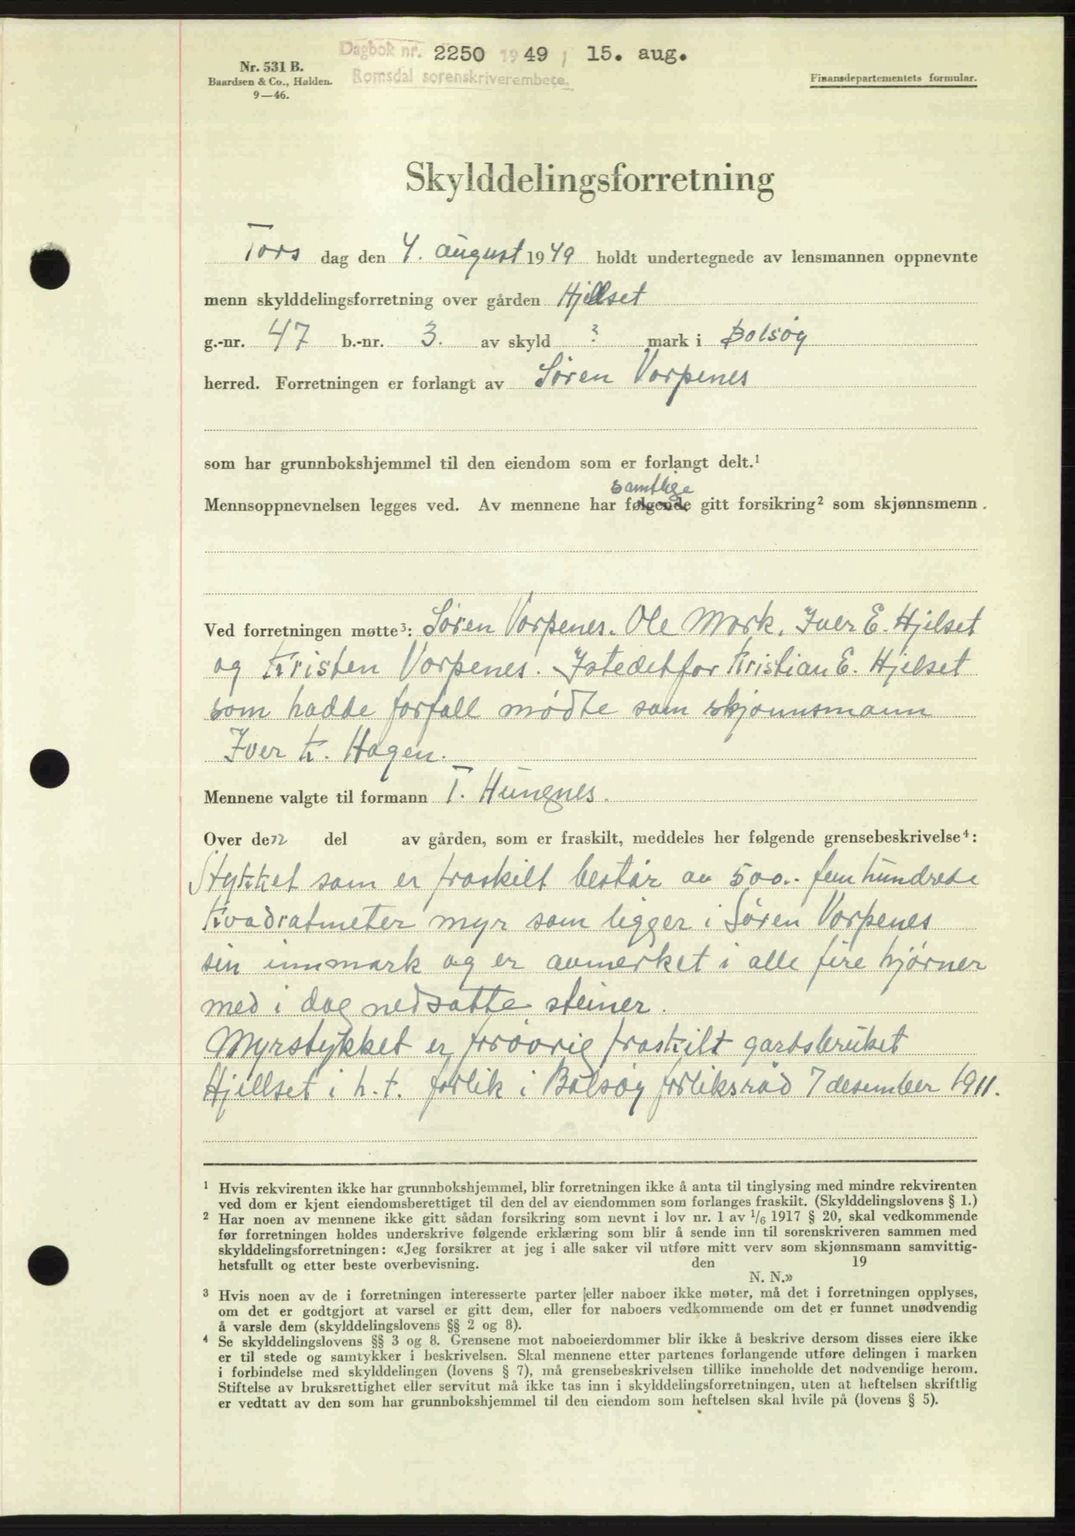 Dagbok nr. 2250 1949 15. aug.
Romsdal sorenskriverembete.
Nr. 531 B.
Baardsen & Co., Halden.
9—46.
Finansdepartementets formular.
Skylddelingsforretning
Tors dag den 4. august 1949 holdt undertegnede av lensmannen oppnevnte
menn skylddelingsforretning over gården Hjellset
g.-nr. 47 b.-nr. 3. av skyld ? mark i Bolsøy
herred. Forretningen er forlangt av Søren Vorpenes
som har grunnbokshjemmel til den eiendom som er forlangt delt.¹
samtlige
Mennsoppnevnelsen legges ved. Av mennene har følgende gitt forsikring² som skjønnsmenn.
Ved forretningen møtte³: Søren Vorpenes. Ole Mork. Iver E. Hjelset
og Kristen Vorpenes. Istedetfor Kristian E. Hjelset
som hadde forfall mødte som skjønnsmann
Iver K. Hagen.
Mennene valgte til formann T. Hungnes.
Over den del av gården, som er fraskilt, meddeles her følgende grensebeskrivelse⁴:
Stykket som er fraskilt består av 500.- fem hundrede
kvadratmeter myr som ligger i Søren Vorpenes
sin innmark og er avmerket i alle fire hjørner
med i dag nedsatte steiner.
Myrstykket er forøvrig fraskilt gardsbruket
Hjellset i h. t. forlik i Bolsøy forliksråd 7 desember 1911.
¹ Hvis rekvirenten ikke har grunnbokshjemmel, blir forretningen ikke å anta til tinglysing med mindre rekvirenten
ved dom er kjent eiendomsberettiget til den del av eiendommen som forlanges fraskilt. (Skylddelingslovens § 1.)
² Har noen av mennene ikke gitt sådan forsikring som nevnt i lov nr. 1 av 1/6 1917 § 20, skal vedkommende
før forretningen holdes underskrive følgende erklæring som blir å sende inn til sorenskriveren sammen med
skylddelingsforretningen: «Jeg forsikrer at jeg i alle saker vil utføre mitt verv som skjønnsmann samvittig-
hetsfullt og etter beste overbevisning. den 19
N. N.»
³ Hvis noen av de i forretningen interesserte parter eller naboer ikke møter, må det i forretningen opplyses,
om det er godtgjort at varsel er gitt dem, eller for naboers vedkommende om det er funnet unødvendig
å varsle dem (skylddelingslovens §§ 2 og 8).
⁴ Se skylddelingslovens §§ 3 og 8. Grensene mot naboeierdommer blir ikke å beskrive dersom disses eiere ikke
er til stede og samtykker i beskrivelsen. Skal mennene etter partenes forlangende utføre delingen i marken
i forbindelse med skylddelingen (lovens § 7), må grensebeskrivelsen tillike inneholde det nødvendige herom.
Stiftelse av bruksrettighet eller servitut må ikke tas inn i skylddelingsforretningen, uten at heftelsen skriftlig
er vedtatt av den som har grunnbokshjemmel til den eiendom som heftelsen skal hvile på (lovens § 5).